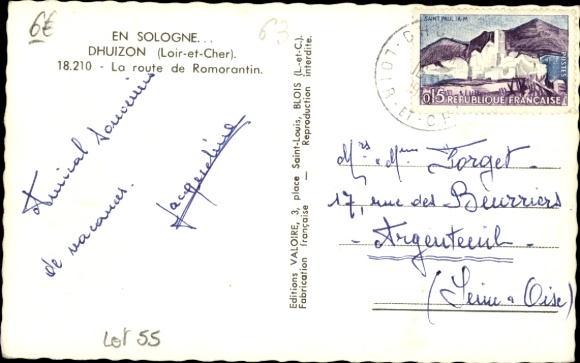 6€
63
EN SOLOGNE...
DHUIZON (Loir-et-Cher).
18.210 - La route de Romorantin.
Amical souvenir
de vacances.
Jacqueline
Lot 55
Editions VALOIRE, 3, place Saint-Louis, BLOIS (L.-et-C.).
Fabrication française - Reproduction interdite.
SAINT PAUL (A-M)
POSTES
0,15 RÉPUBLIQUE FRANÇAISE
LOIR-ET-CH
Mrs & Mme Forget
17, rue des Beurriers
- Argenteuil -
(Seine & Oise)